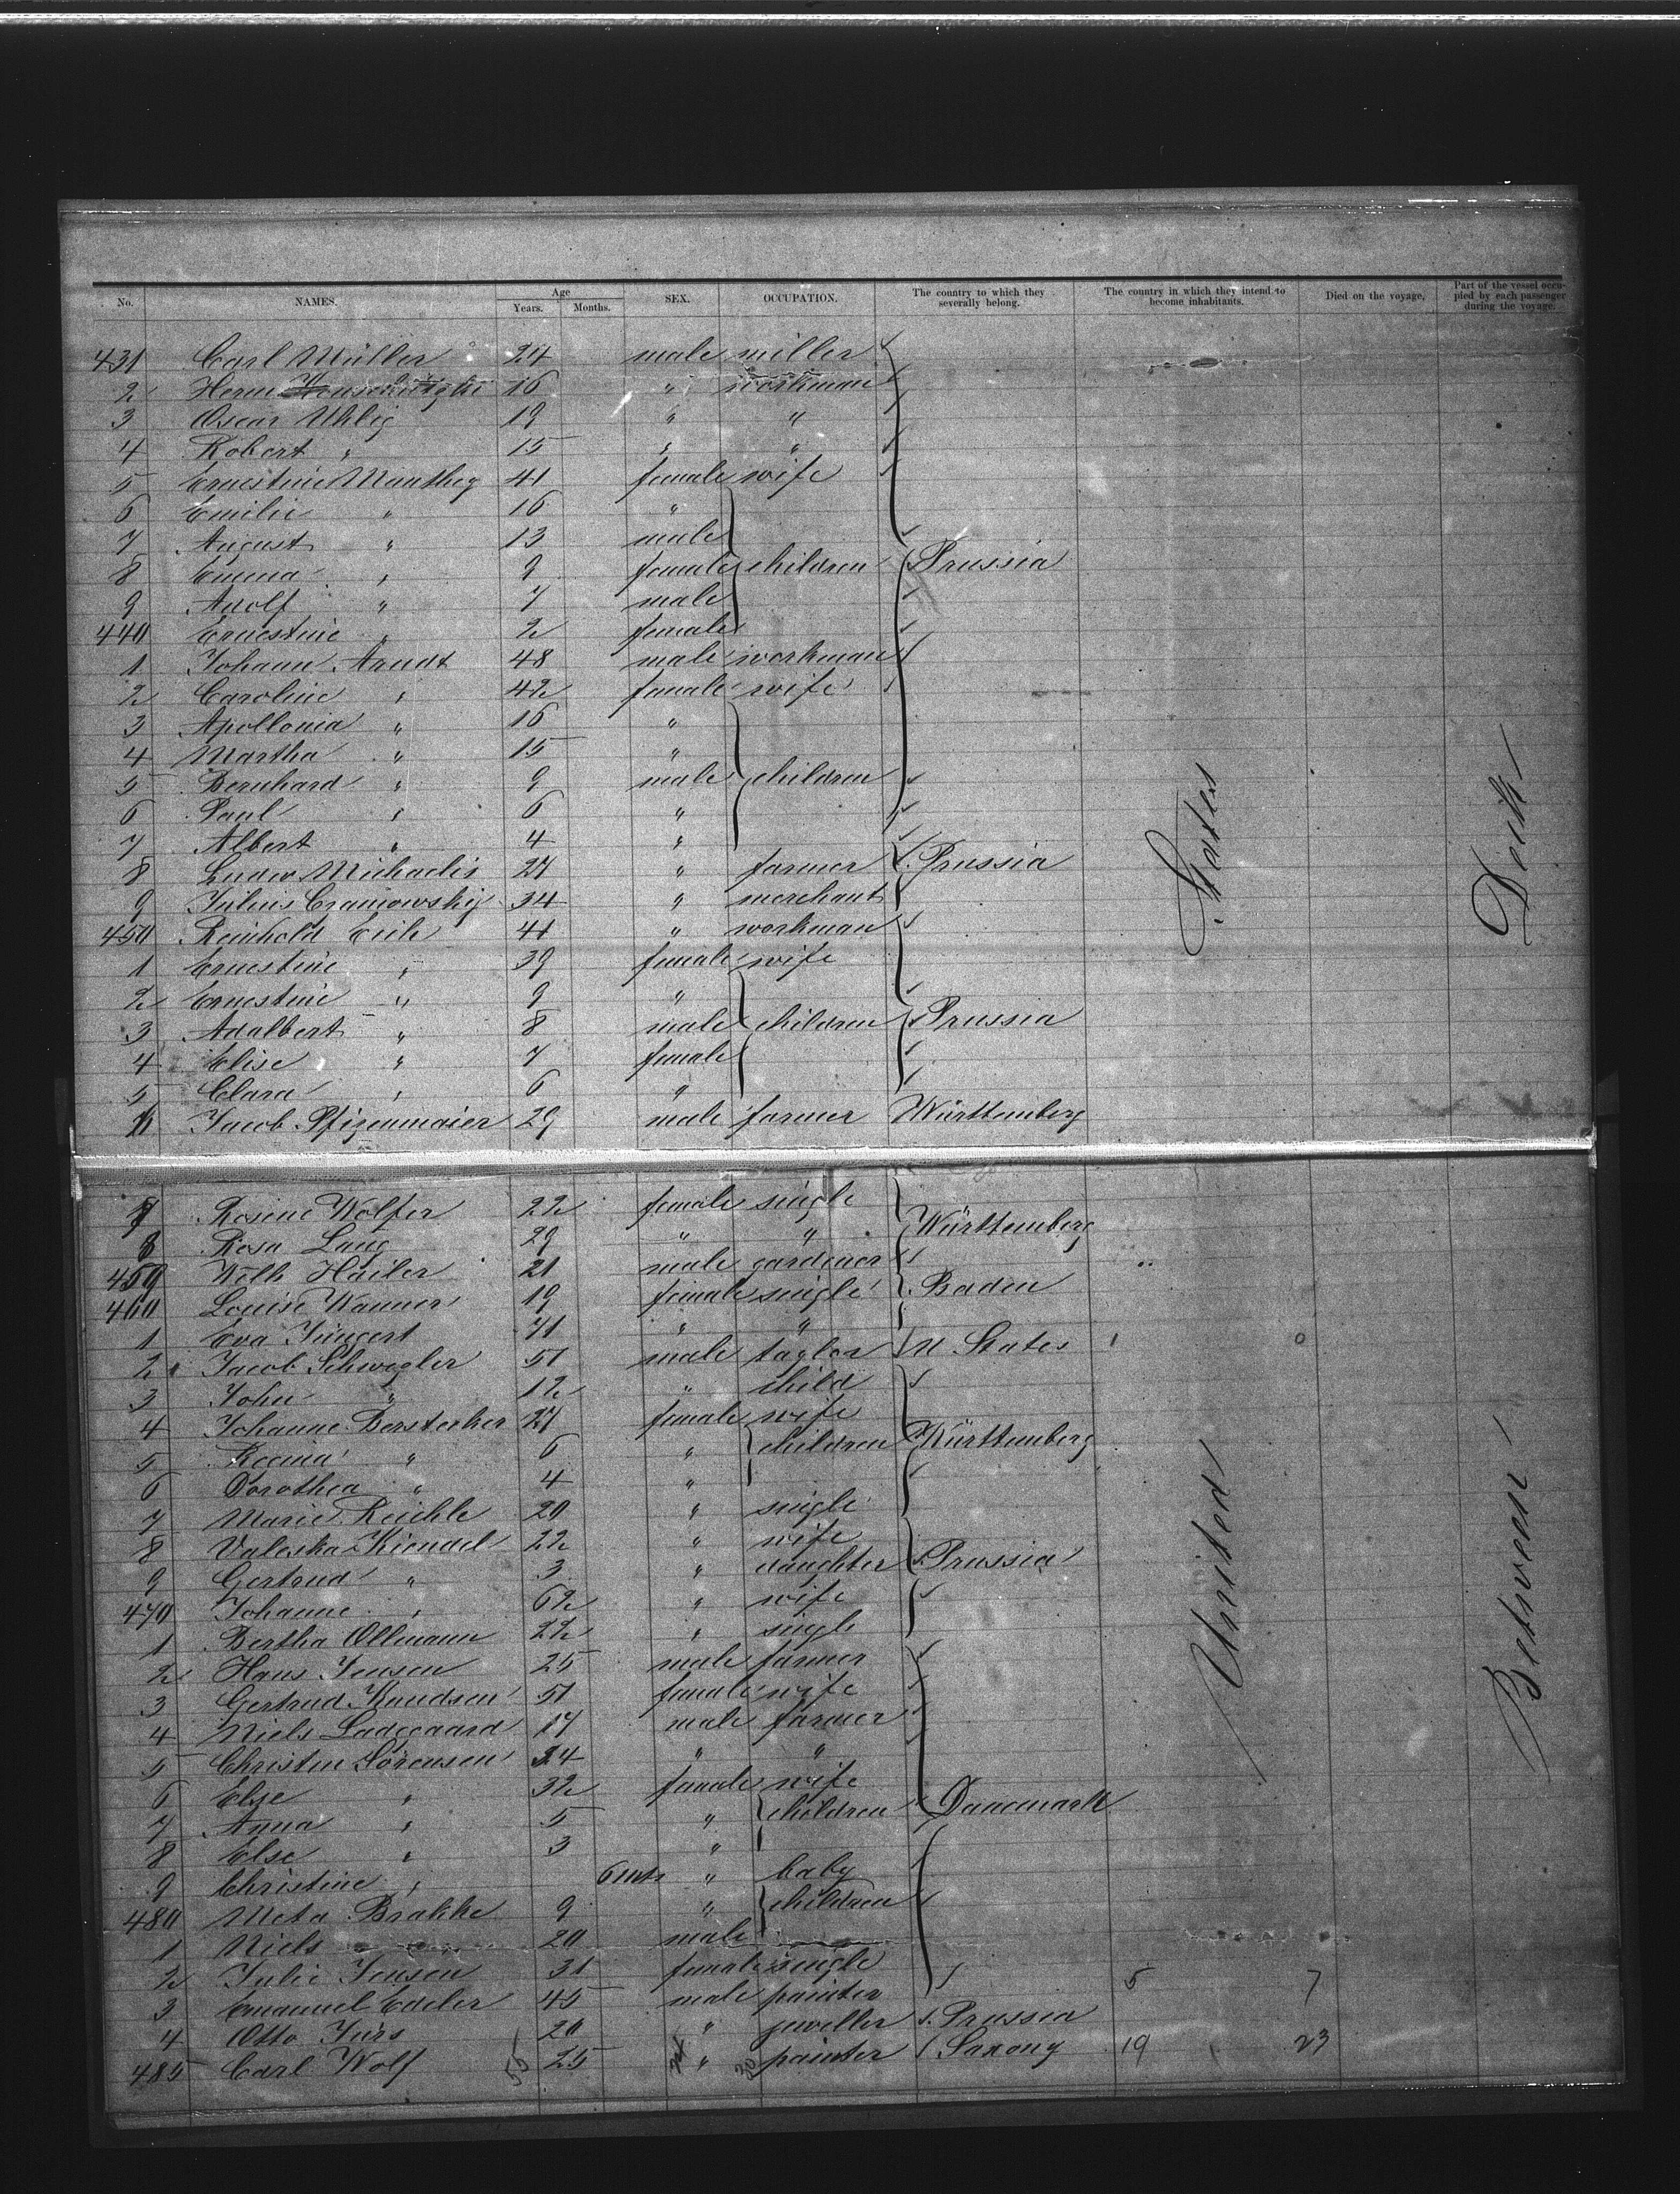 No. NAMES. Age Years. Months. SEX. OCCUPATION. The country to which they severally belong. The country in which they intend to become inhabitants. Died on the voyage, Part of the vessel occupied by each passenger during the voyage.
431 Carl Müller 24 male miller
2 Herm 16 " workman
3 Oscar Uhlig 19 " "
4 Robert " 15 " "
5 Ernestine Manthey 41 female wife
6 Emilie " 16 "
7 August " 13 male
8 Emma " 9 female children Prussia
9 Adolf " 7 male
440 Ernestine " 2 female
1 Johann Arndt 48 male workman
2 Caroline " 42 female wife
3 Apollonia " 16 "
4 Martha " 15 "
5 Bernhard " 9 male children
6 Paul " 6 "
7 Albert " 4 "
8 Ludw Michaelis 27 " farmer Prussia
9 Julius Cranowsky 34 " merchant
450 Reinhold Eich 41 " workman
1 Ernestine " 39 female wife
2 Ernestine " 9 "
3 Adalbert " 8 male children Prussia
4 Elise " 7 female
5 Clara " 6 "
6 Jacob Pfizenmaier 29 male farmer Württemberg
7 Rosine Wolfer 22 female single
8 Rosa Lang 29 " " Württemberg
459 Wilh Hailer 21 male gardener
460 Louise Wanner 19 female single Baden
1 Eva Jüngert 71 " "
2 Jacob Schwegler 51 male taylor U States
3 John " 12 " child
4 Johanne Berstecher 27 female wife
5 Regina " 6 " children Württemberg
6 Dorothea " 4 "
7 Marie Reichle 20 " single
8 Valeska Kiendel 22 " wife
9 Gertrud " 3 " daughter Prussia
470 Johanne " 62 " wife
1 Bertha Ollmann 22 " single
2 Hans Jensen 25 male farmer
3 Gertrud Knudsen 51 female wife
4 Niels Ladegaard 17 male farmer
5 Christen Sörensen 34 " "
6 Else " 32 female wife
7 Anna " 5 " children Danemark
8 Else " 3 "
9 Christine " 6 mts " baby
480 Meta Brakke 9 " children
1 Niels 20 male
2 Julie Jensen 31 female single 5 7
3 Emanuel Edeler 45 male painter
4 Otto Jürs 20 " jeweller Prussia
485 Carl Wolf 55 25 " 30 painter Saxony 19 23
United States
Between Deck